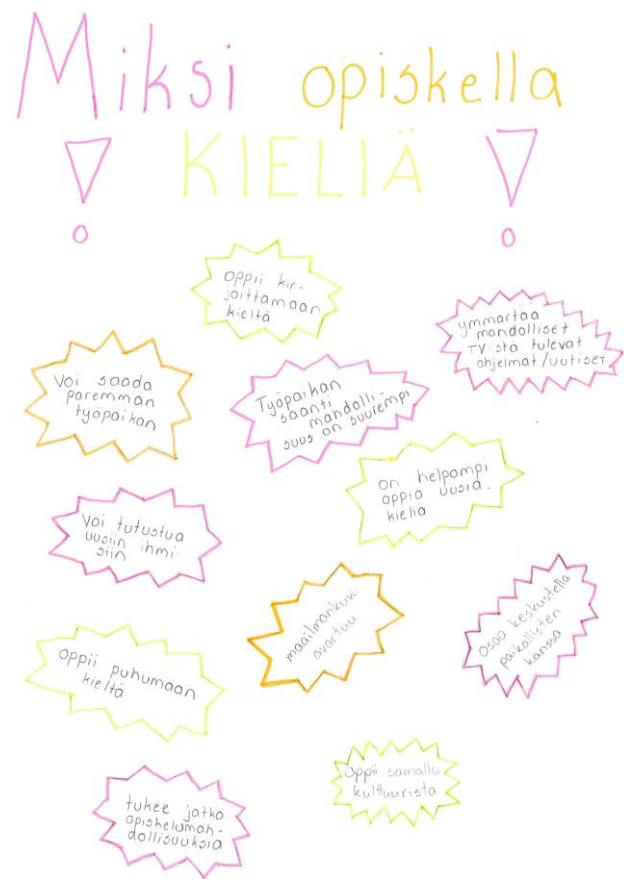 Miksi opiskella
! KIELIÄ !
oppii kir-
joittamaan
kieltä
ymmärtää
mahdolliset
TV:stä tulevat
ohjelmat/uutiset
Voi saada
paremman
työpaikan
Työpaikan
saanti
mahdolli-
suus on suurempi
on helpompi
oppia uusia
kieliä
Voi tutustua
uusiin ihmi-
siin
maailmankuva
avartuu
osaa keskustella
paikallisten
kanssa
oppii puhumaan
kieltä
oppii samalla
kulttuurista
tukee jatko-
opiskelumah-
dollisuuksia